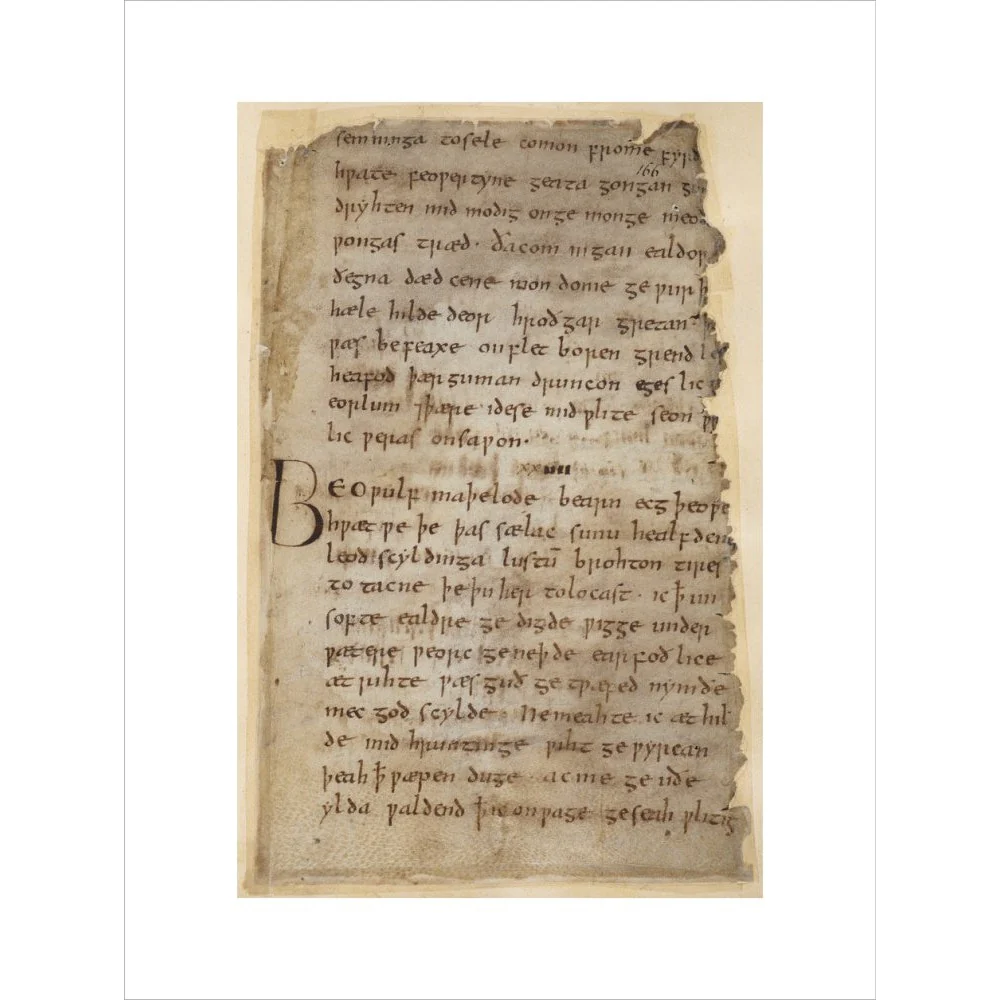 semninga to sele comon frome fyrd
166
hƿate feoƿertyne geata gongan gu
dryhten mid modig on ge monge meodo
ƿongas træd · ða com in gan ealdor
ðegna dæd cene mon dome ge ƿurþ
hæle hilde deor hroðgar gretan ·
ƿæs be feaxe on flet boren grendles
heafod þær guman druncon egeslic
eorlum ⁊ þære idese mid ƿlite seon
lic ƿeras onsaƿon ·
xxiiii
BEOƿulf maþelode bearn ecgþeoƿes
hƿæt ƿe þe þas sælac sunu healfdenes
leod scyldinga lustū brohton tires
to tacne þe þu her to locast · ic ꝥ un
softe ealdre ge digde ƿigge under
ƿætere ƿeorc ge neþde earfoð lice
æt rihte ƿæs guð ge tƿæfed nymðe
mec god scylde · Ne meahte ic æt hil
de mid hruntinge ƿiht ge ƿyrcan
þeah ꝥ ƿæpen duge · ac me ge uðe
ylda ƿaldend ꝥ ic on ƿage ge seah ƿlitig